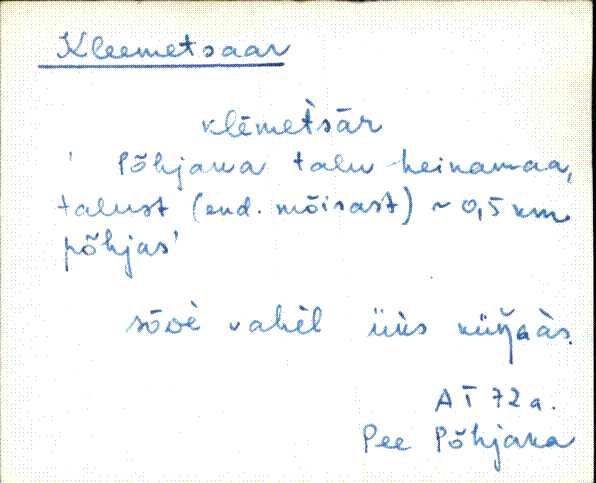 Kleemetsaar
klēmet̀sār
' Põhjana talu heinamaa,
talust (end. mõisast) ~ 0,5 km
põhjas'
sōvè vahèl üks
AT 72 a.
Pee Põhjana